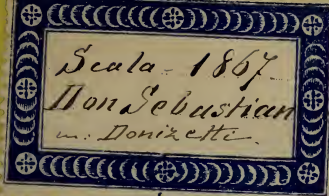 Scala - 1867
Don Sebastian
m: Donizetti.